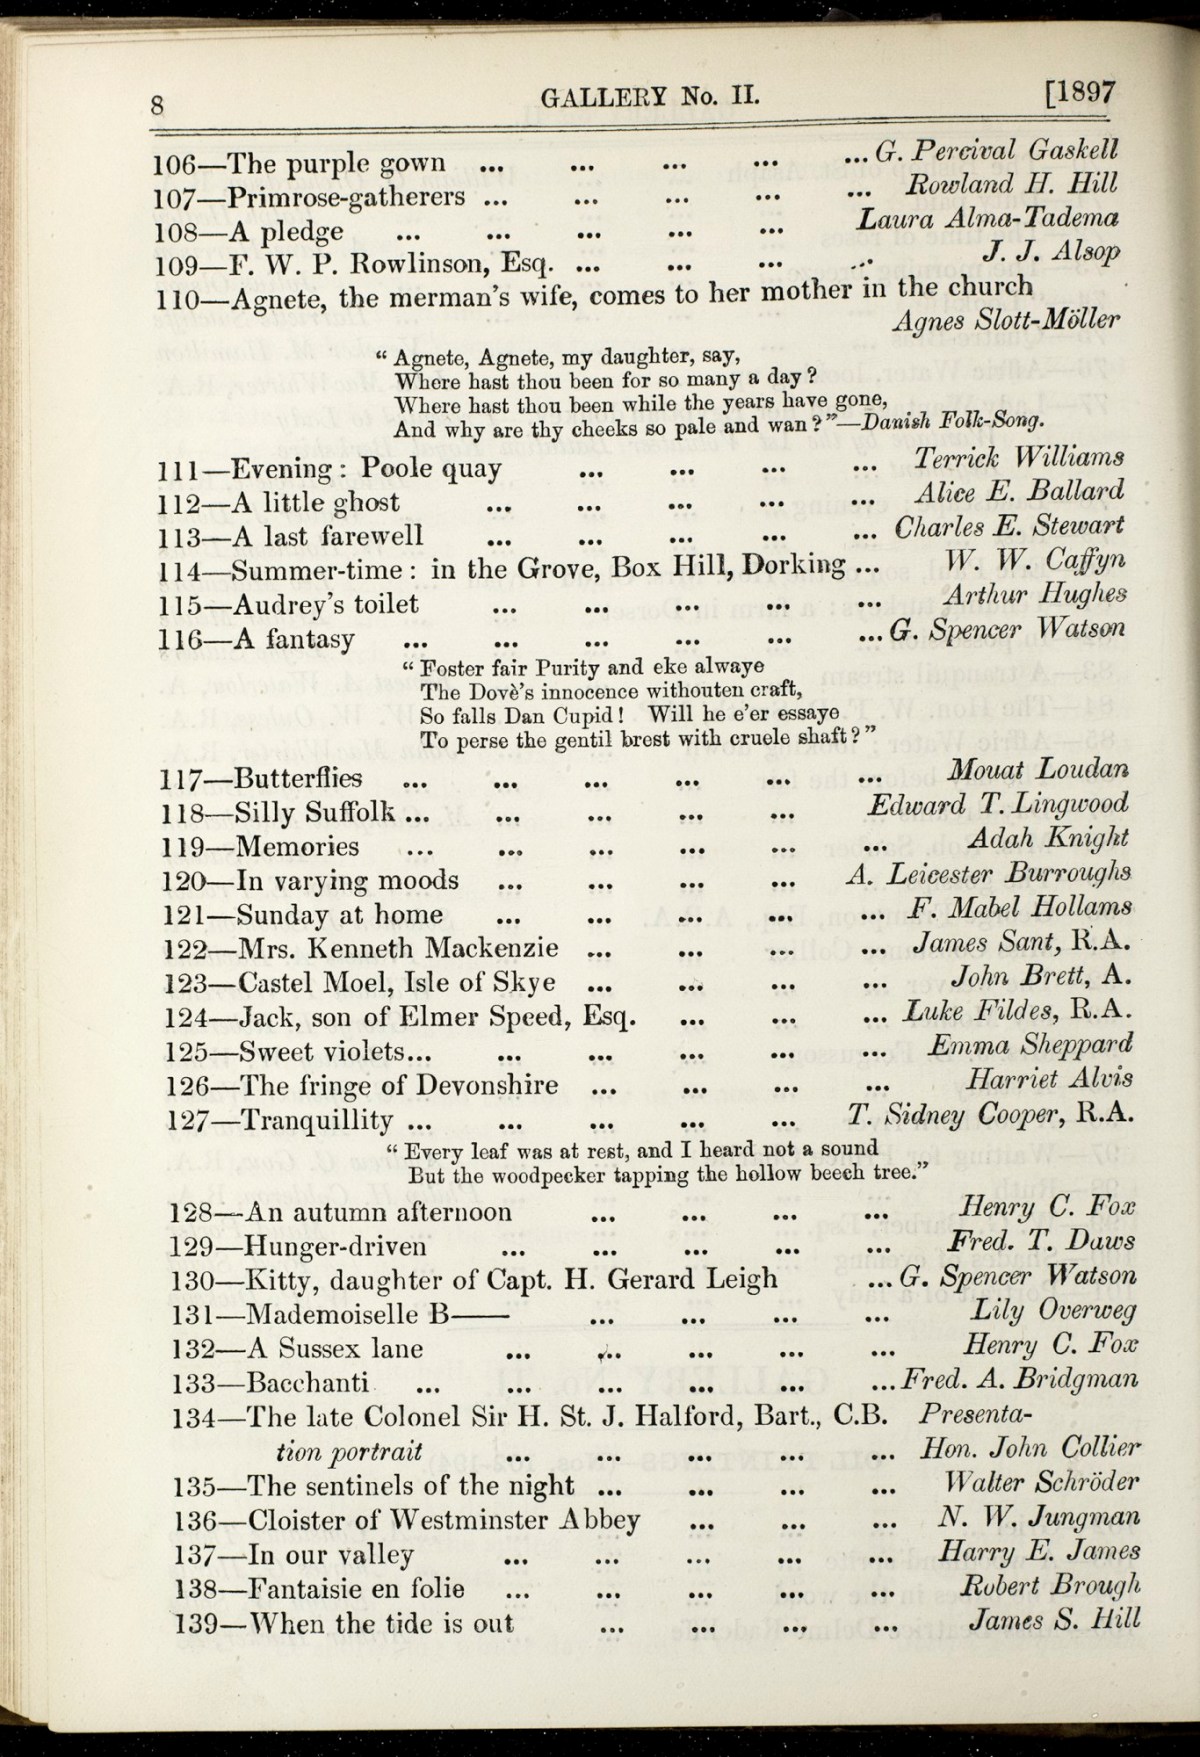 8 GALLERY No. II. [1897
106—The purple gown ... ... ... ... ... G. Percival Gaskell
107—Primrose-gatherers ... ... ... ... ... Rowland H. Hill
108—A pledge ... ... ... ... ... Laura Alma-Tadema
109—F. W. P. Rowlinson, Esq. ... ... ... .. J. J. Alsop
110—Agnete, the merman's wife, comes to her mother in the church
Agnes Slott-Möller
“ Agnete, Agnete, my daughter, say,
Where hast thou been for so many a day?
Where hast thou been while the years have gone,
And why are thy cheeks so pale and wan?”—Danish Folk-Song.
111—Evening: Poole quay ... ... ... ... Terrick Williams
112—A little ghost ... ... ... ... ... Alice E. Ballard
113—A last farewell ... ... ... ... ... Charles E. Stewart
114—Summer-time: in the Grove, Box Hill, Dorking ... W. W. Caffyn
115—Audrey's toilet ... ... ... ... ... Arthur Hughes
116—A fantasy ... ... ... ... ... ... G. Spencer Watson
“ Foster fair Purity and eke alwaye
The Dovè's innocence withouten craft,
So falls Dan Cupid! Will he e'er essaye
To perse the gentil brest with cruele shaft?”
117—Butterflies ... ... ... ... ... ... Mouat Loudan
118—Silly Suffolk ... ... ... ... ... Edward T. Lingwood
119—Memories ... ... ... ... ... ... Adah Knight
120—In varying moods ... ... ... ... A. Leicester Burroughs
121—Sunday at home ... ... ... ... ... F. Mabel Hollams
122—Mrs. Kenneth Mackenzie ... ... ... ... James Sant, R.A.
123—Castel Moel, Isle of Skye ... ... ... ... John Brett, A.
124—Jack, son of Elmer Speed, Esq. ... ... ... Luke Fildes, R.A.
125—Sweet violets... ... ... ... ... ... Emma Sheppard
126—The fringe of Devonshire ... ... ... ... Harriet Alvis
127—Tranquillity ... ... ... ... ... T. Sidney Cooper, R.A.
“ Every leaf was at rest, and I heard not a sound
But the woodpecker tapping the hollow beech tree.”
128—An autumn afternoon ... ... ... ... Henry C. Fox
129—Hunger-driven ... ... ... ... ... Fred. T. Daws
130—Kitty, daughter of Capt. H. Gerard Leigh ... G. Spencer Watson
131—Mademoiselle B—— ... ... ... ... Lily Overweg
132—A Sussex lane ... ... ... ... ... Henry C. Fox
133—Bacchanti ... ... ... ... ... ... Fred. A. Bridgman
134—The late Colonel Sir H. St. J. Halford, Bart., C.B. Presenta-
tion portrait ... ... ... ... ... Hon. John Collier
135—The sentinels of the night ... ... ... ... Walter Schröder
136—Cloister of Westminster Abbey ... ... ... N. W. Jungman
137—In our valley ... ... ... ... ... Harry E. James
138—Fantaisie en folie ... ... ... ... ... Robert Brough
139—When the tide is out ... ... ... ... James S. Hill